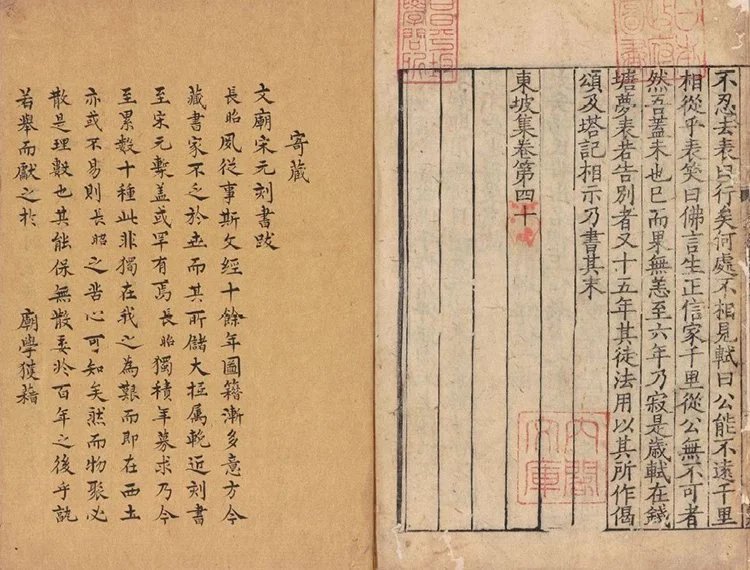 不忍去表曰行矣何處不相見軾曰公能不遠千里
相從乎表笑曰佛言生正信家千里從公無不可者
然吾蓋未也已而果無恙至六年乃寂是歲軾在錢
塘夢表若告別者又十五年其徒法用以其所作偈
頌及塔記相示乃書其末
東坡集卷第四十
內閣
文庫
寄藏
文廟宋元刻書跋
長昭夙從事斯文經十餘年圖籍漸多意方今
藏書家不乏於世而其所儲大抵屬輓近刻書
至宋元槧蓋或罕有焉長昭獨積年募求乃今
至累數十種此非獨在我之為艱而即在西土
亦或不易則長昭之苦心可知矣然而物聚必
散是理數也其能保無散委於百年之後乎孰
若舉而獻之於
廟學獲藉